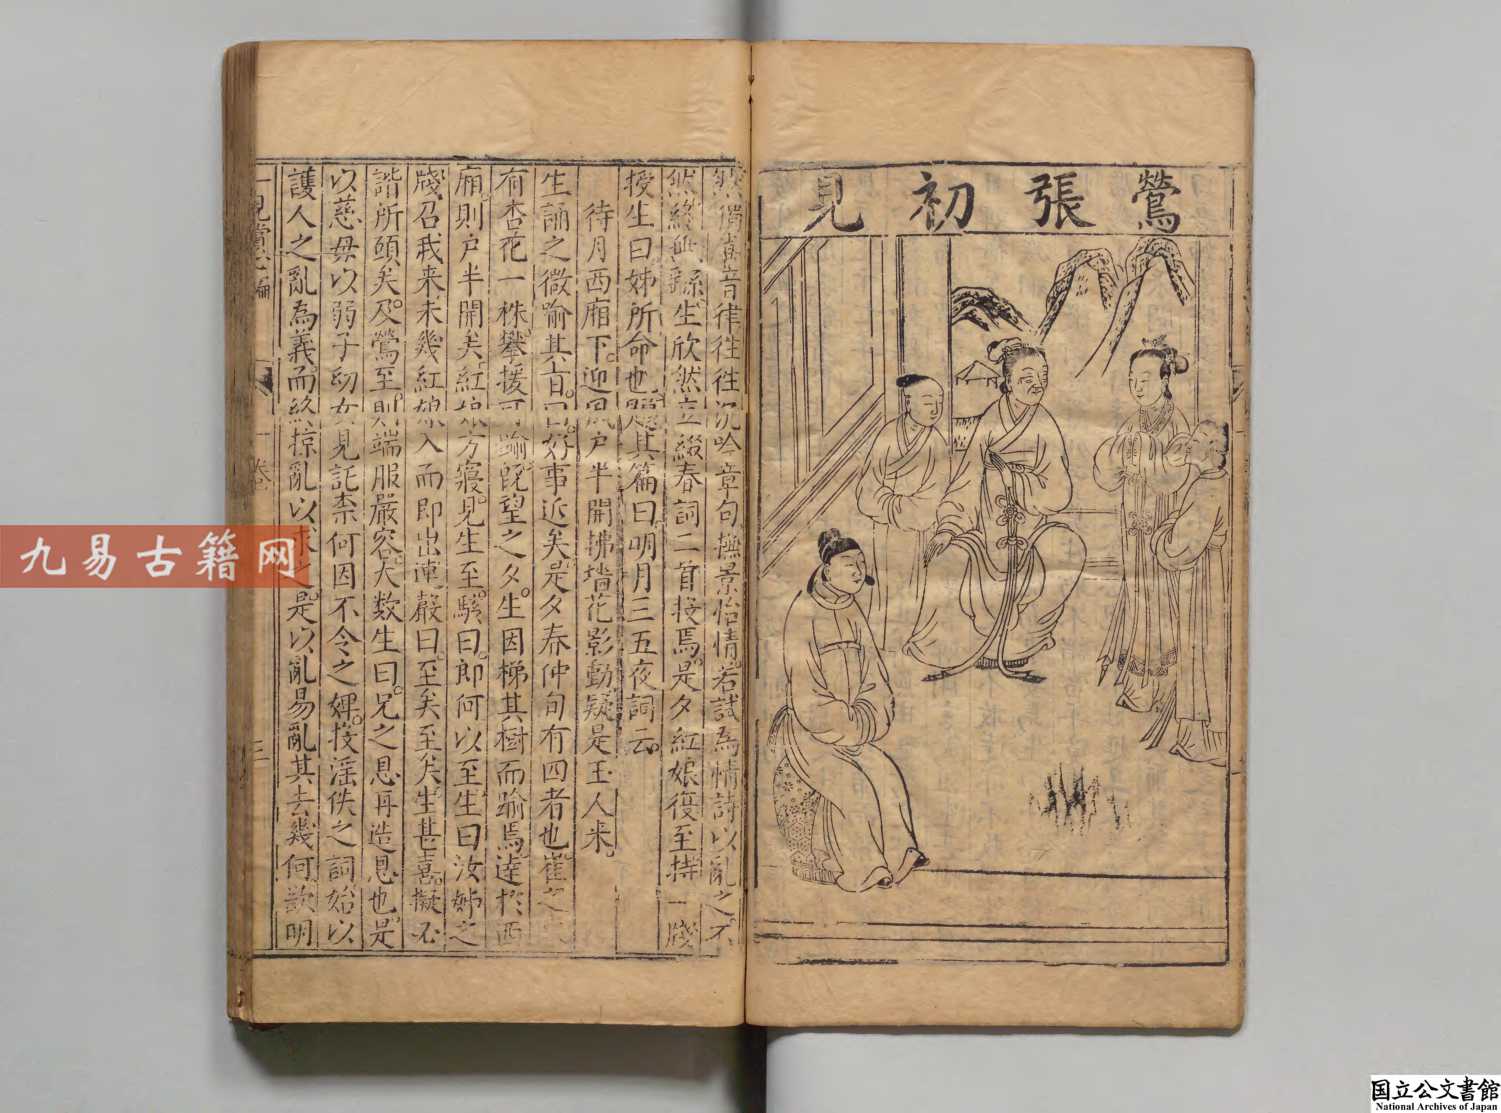 鶯張初見
偶喜音律往往沉吟章句撫景怡情若試為情詩以亂之。不
然終無繇。生欣然立綴春詞二首授焉。是夕紅娘復至持一牋
授生曰姊所命也題其篇曰明月三五夜詞云。
待月西廂下。迎風戶半開拂墻花影動疑是玉人来。
生誦之微喻其旨。曰好事近矣。是夕春仲旬有四者也崔之
有杏花一株攀援可踰既望之夕。生因梯其樹而踰焉達於西
廂。則戶半開矣。紅娘方寢。見生至。駭曰。郎何以至。生曰汝姊之
牋召我来未幾紅娘入而即出連聲曰。至矣至矣。生甚喜。擬必
諧所願矣。及鶯至。則端服嚴容。大數生曰。兄之恩再造恩也。是
以慈母以弱子幼女見託柰何因不令之婢。授淫佚之詞始以
護人之亂為義。而終掠亂以求之。是以亂易亂其去幾何欲明
一見賞心編
卷一
三
九易古籍网
国立公文書館
National Archives of Japan